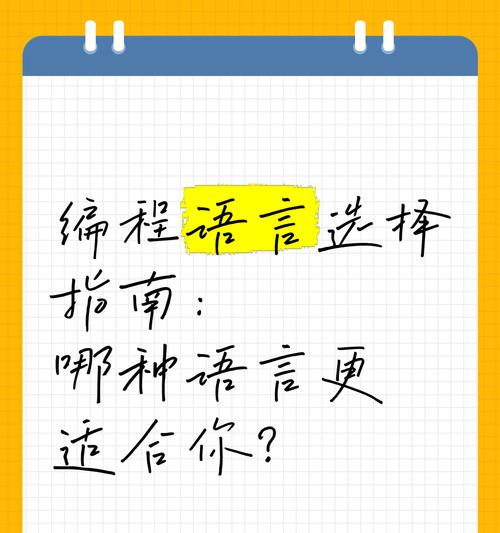 编程语言选择
指南：
哪种语言更
适合你？